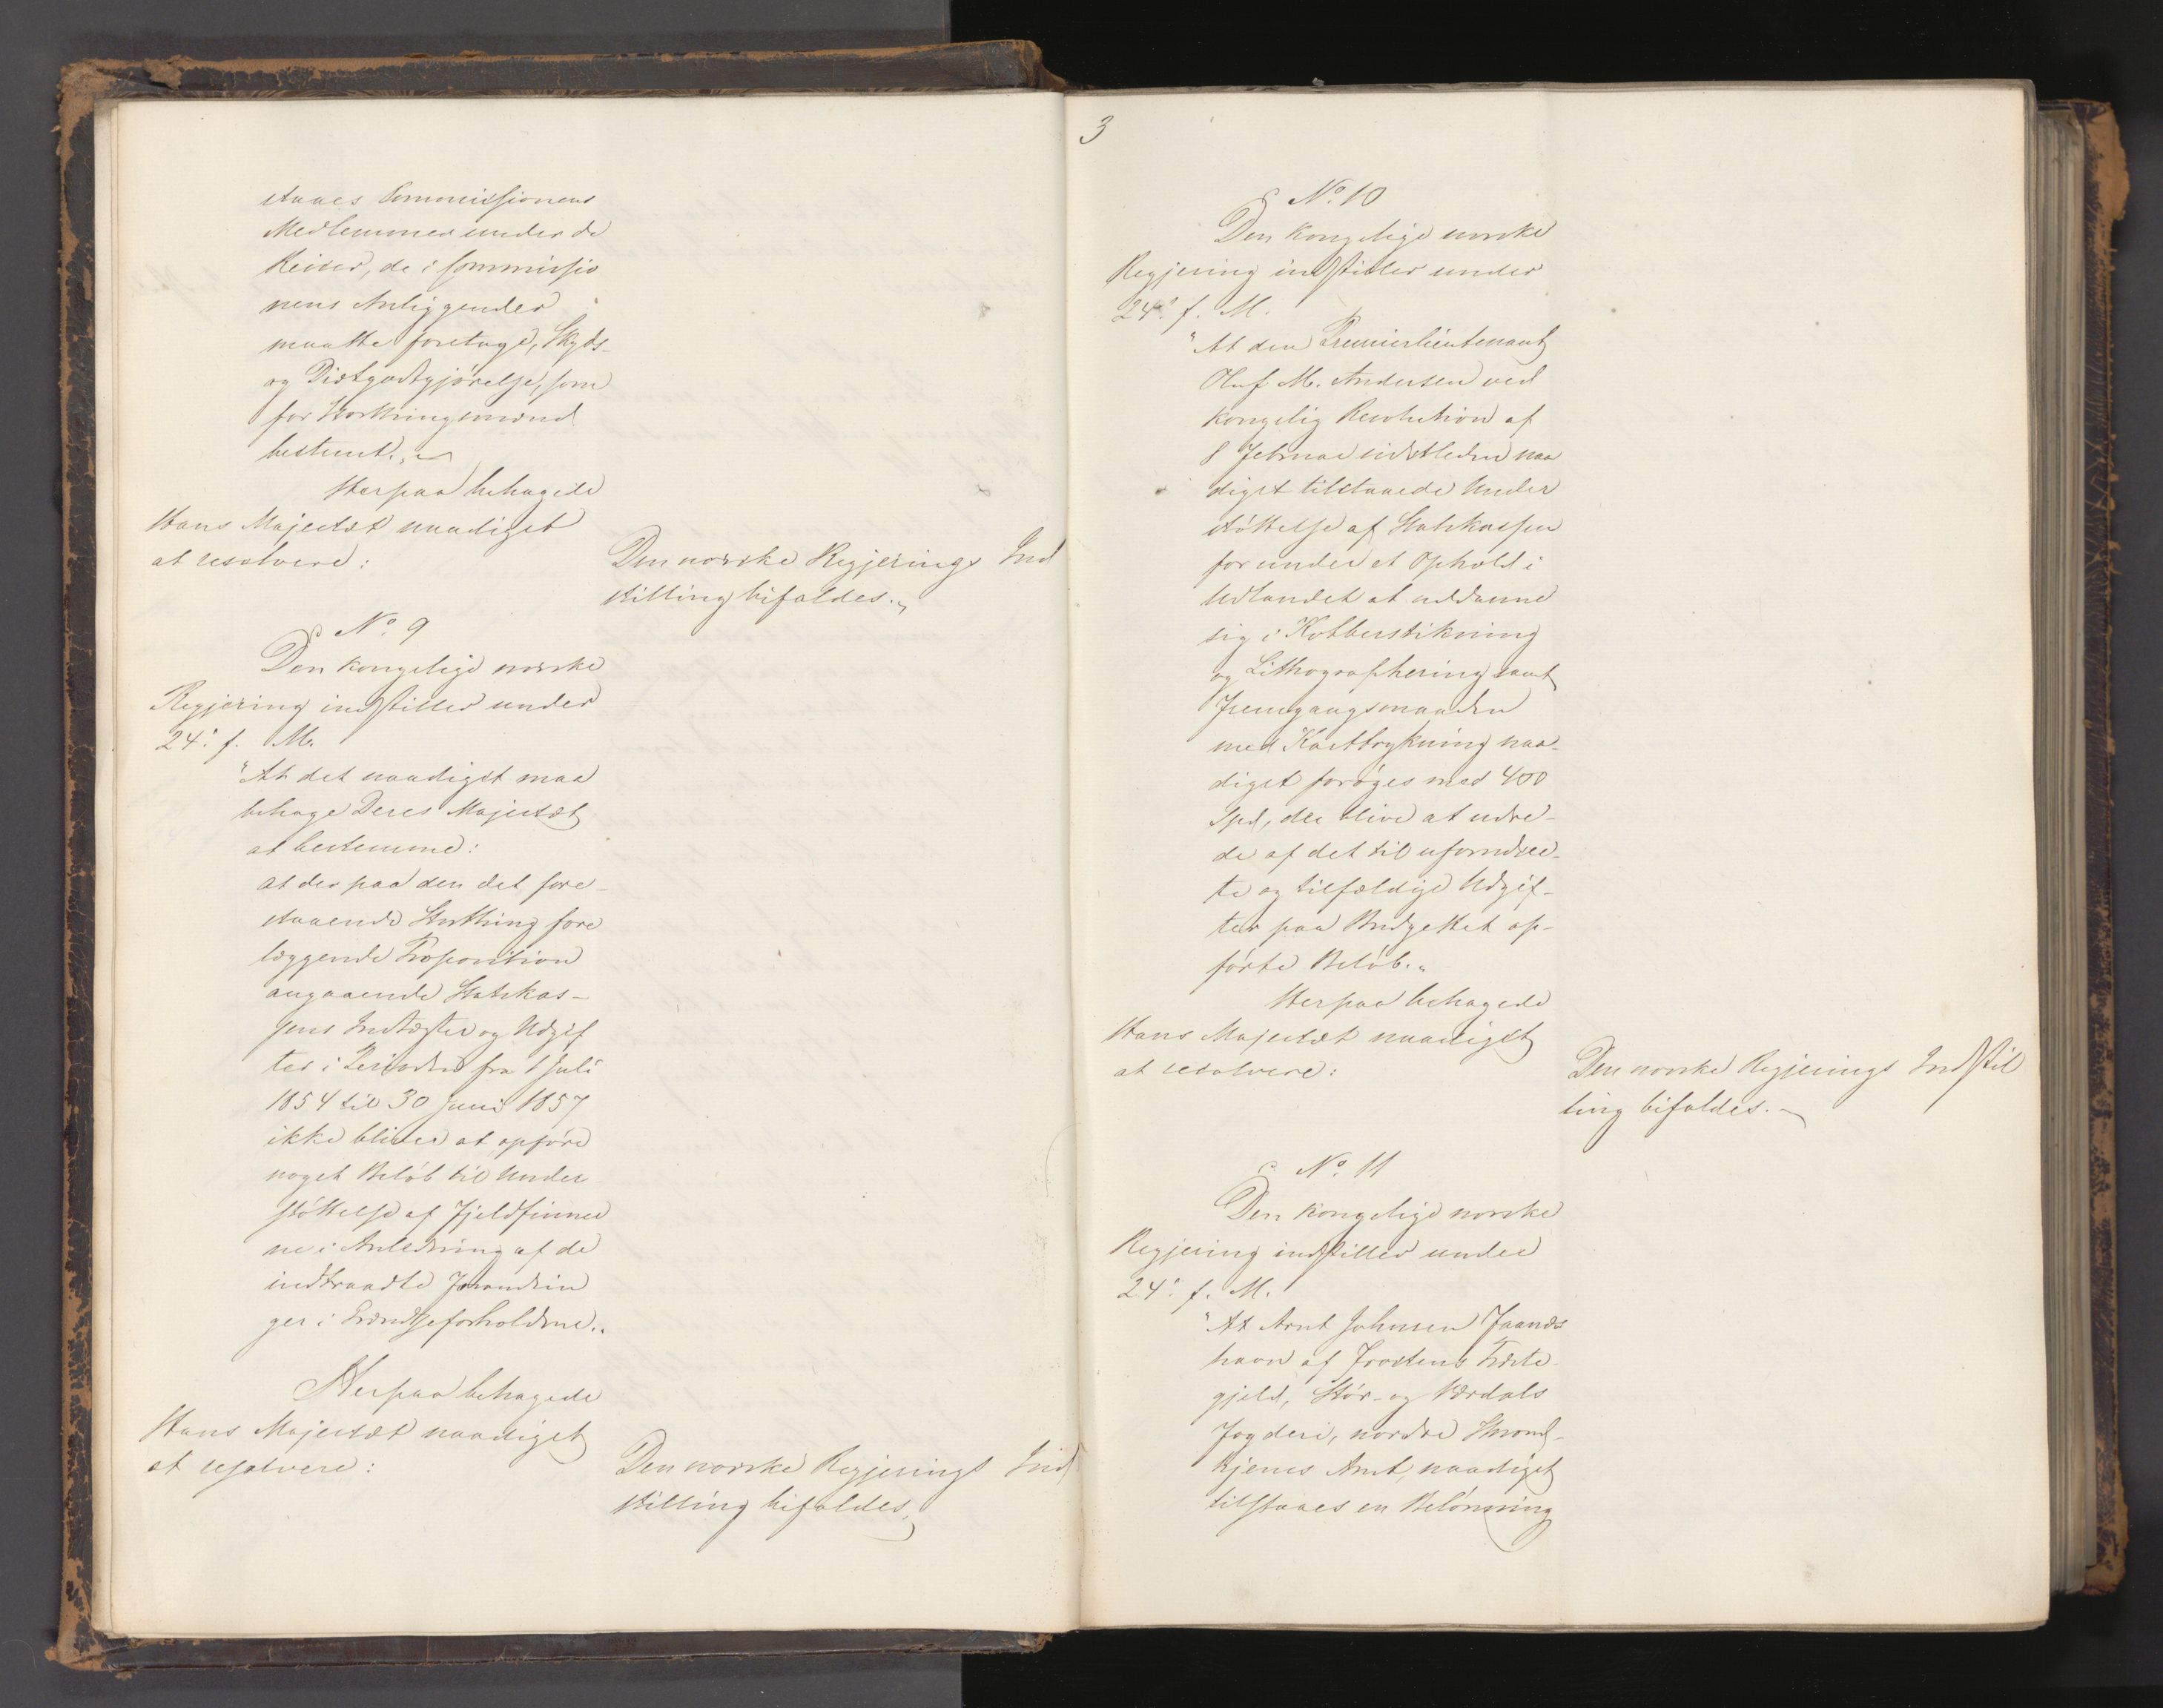 staaes Commissionens
Medlemmer under de
Reiser, de i Commissio
nens Anliggender
maatte foretage, Skyds-
og Diætgodtgjørelse, som
for Storthingsmænd
bestemt.„
Herpaa behagede
Hans Majestæt naadigst
at resolvere:
Den norske Regjerings Ind
stilling bifaldes.„
No. 9
Den kongelige norske
Regjering indstiller under
24. f. M.
"At det naadigst maa
behage Deres Majestæt
at bestemme:
at der paa den det fore-
staaende Storthing fore
læggende Proposition
angaaende Statskas-
sens Indtægter og Udgif
ter i Perioden fra 1 Juli
1854 til 30 Juni 1857
ikke bliver at opføre
noget Beløb til Under
støttelse af Fjeldfinner
ne i Anledning af de
indtraadte Forandrin
ger i Grændseforholdene.„
Herpaa behagede
Hans Majestæt naadigst
at resolvere:
Den norske Regjerings Ind
stilling bifaldes.„
3
No. 10
Den kongelige norske
Regjering indstiller under
24. f. M.
"At den Premierlieutenant
Oluf M. Andersen ved
kongelig Resolution af
8 Februar sidstleden naa
digst tilstaaede Under
støttelse af Statskassen
for under et Ophold i
Udlandet at uddanne
sig i Kobberstikning
og Lithographering samt
Fremgangsmaaden
med Kartbrykning naa-
digst forøges med 400
Spd, der blive at udre-
de af det til uforudsee-
te og tilfældige Udgif-
ter paa Budgettet op-
førte Beløb.„
Herpaa behagede
Hans Majestæt naadigst
at resolvere:
Den norske Regjerings Indstil
ling bifaldes.
No. 11
Den kongelige norske
Regjering indstiller under
24. f. M.
"At Arnt Johnsen Faanes
havn af Frostens Præste-
gjeld, Stør- og Værdals
Fogderi, nordre Thrond-
hjems Amt, naadigst
tilstaaes en Belønning